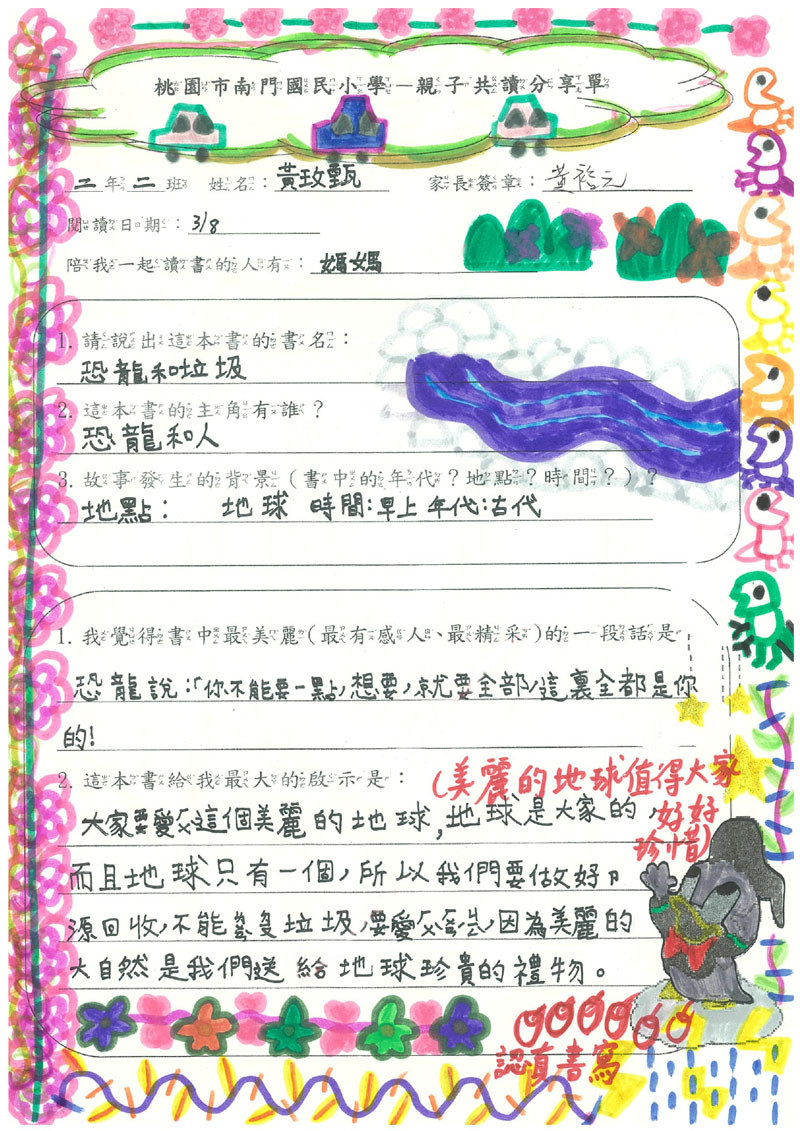 桃園市南門國民小學—親子共讀分享單
二年二班 姓名：黃玫甄 家長簽章：黃
閱讀日期：3/8
陪我一起讀書的人有：媽媽
1. 請說出這本書的書名：
恐龍和垃圾
2. 這本書的主角有誰？
恐龍和人
3. 故事發生的背景（書中的年代？地點？時間？）？
地點： 地球 時間：早上 年代：古代
1. 我覺得書中最美麗(最有感人、最精采)的一段話是
恐龍說：「你不能要一點，想要，就要全部，這裏全都是你
的!
2. 這本書給我最大的啟示是：
(美麗的地球值得大家
好好
珍惜)
大家要愛這個美麗的地球，地球是大家的，
而且地球只有一個，所以我們要做好
源回收，不能垃圾，要愛，因為美麗的
大自然是我們送給地球珍貴的禮物。
認真書寫